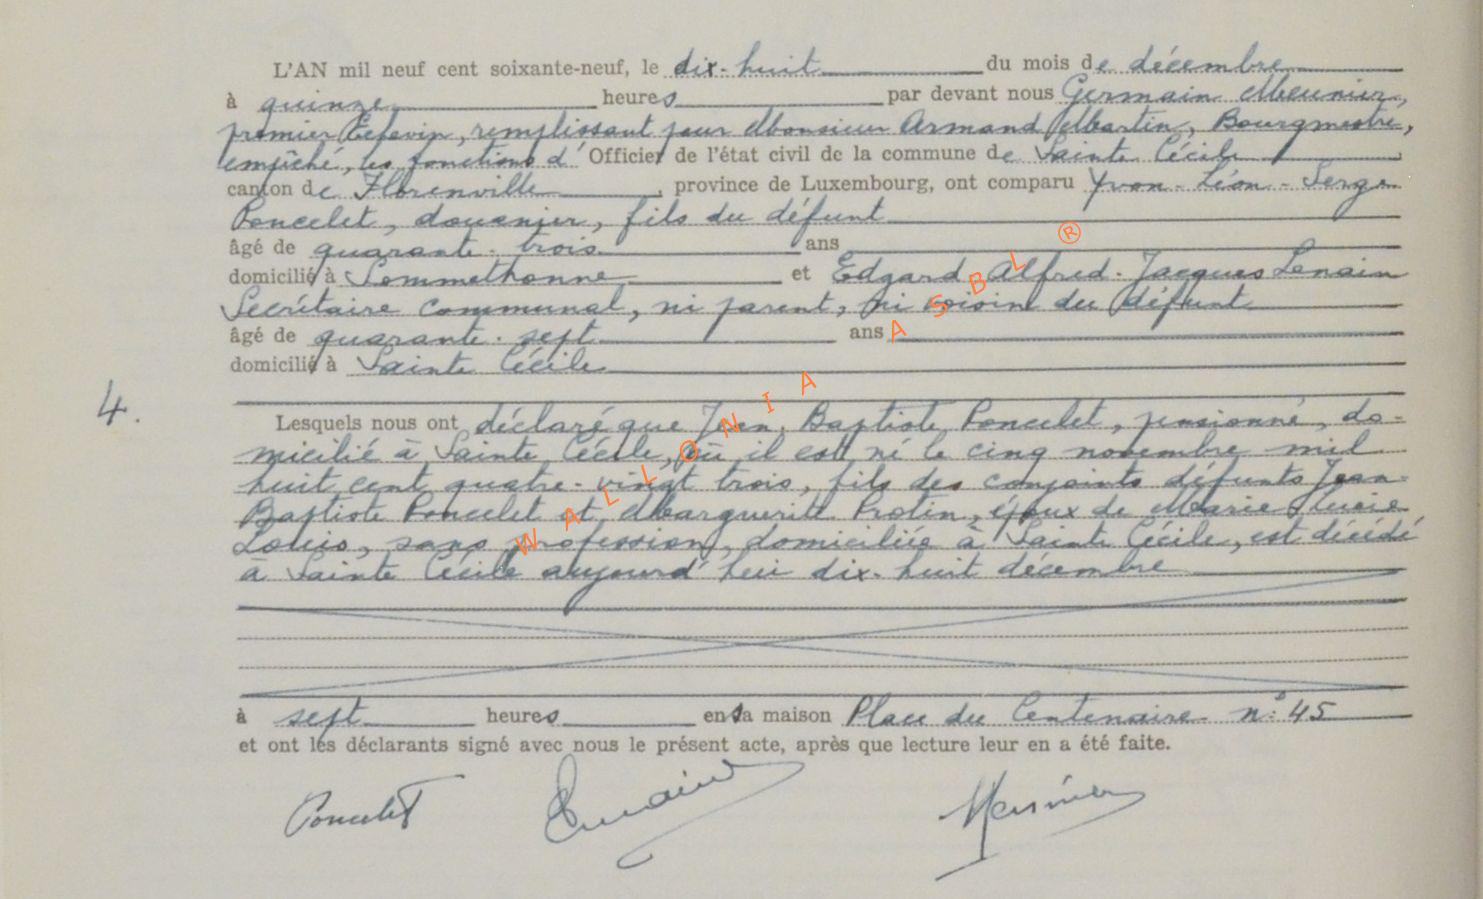 L'AN mil neuf cent soixante-neuf, le dix-huit du mois de décembre
à quinze heures par devant nous Germain Meunier,
premier Echevin, remplissant pour Monsieur Armand Martin, Bourgmestre,
empêché, les fonctions d' Officier de l'état civil de la commune de Sainte Cécile
canton de Florenville, province de Luxembourg, ont comparu Yvon-Léon-Serge
Poncelet, douanier, fils du défunt
âgé de quarante-trois ans
domicilié à Sommethonne et Edgard-Alfred-Jacques Lenain
Secrétaire communal, ni parent, ni voisin du défunt
âgé de quarante-sept ans
domicilié à Sainte Cécile
4.
Lesquels nous ont déclaré que Jean-Baptiste Poncelet, pensionné, do-
micilié à Sainte Cécile, où il est né le cinq novembre mil
huit cent quatre-vingt trois, fils des conjoints défunts Jean-
Baptiste Poncelet et Marguerite Protin, époux de Marie Lucie
Louis, sans profession, domiciliée à Sainte Cécile, est décédé
à Sainte Cécile aujourd'hui dix-huit décembre
à sept heures en sa maison Place du Centenaire n° 45
et ont les déclarants signé avec nous le présent acte, après que lecture leur en a été faite.
Poncelet Lenain Meunier
WALLONIA ASBL ®